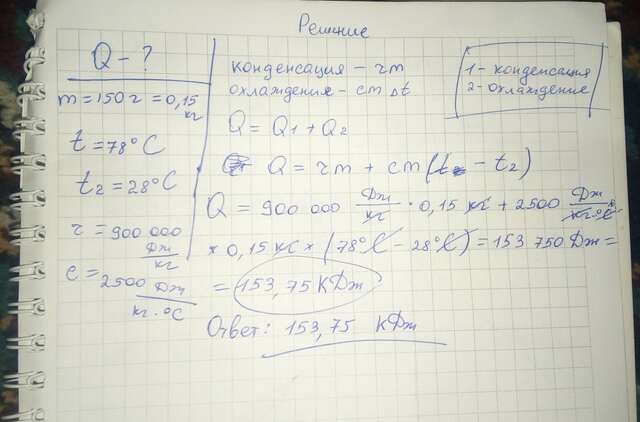 Решение
Q - ?
m = 150 г = 0,15 кг
t = 78°C
t2 = 28°C
r = 900 000 Дж/кг
c = 2500 Дж/кг·°C
конденсация - rm
охлаждения - cm Δt
1 - конденсация
2 - охлаждение
Q = Q1 + Q2
Q = rm + cm (t - t2)
Q = 900 000 Дж/кг · 0,15 кг + 2500 Дж/кг·°C
× 0,15 кг × (78°C - 28°C) = 153 750 Дж =
= 153,75 КДж
Ответ: 153,75 КДж